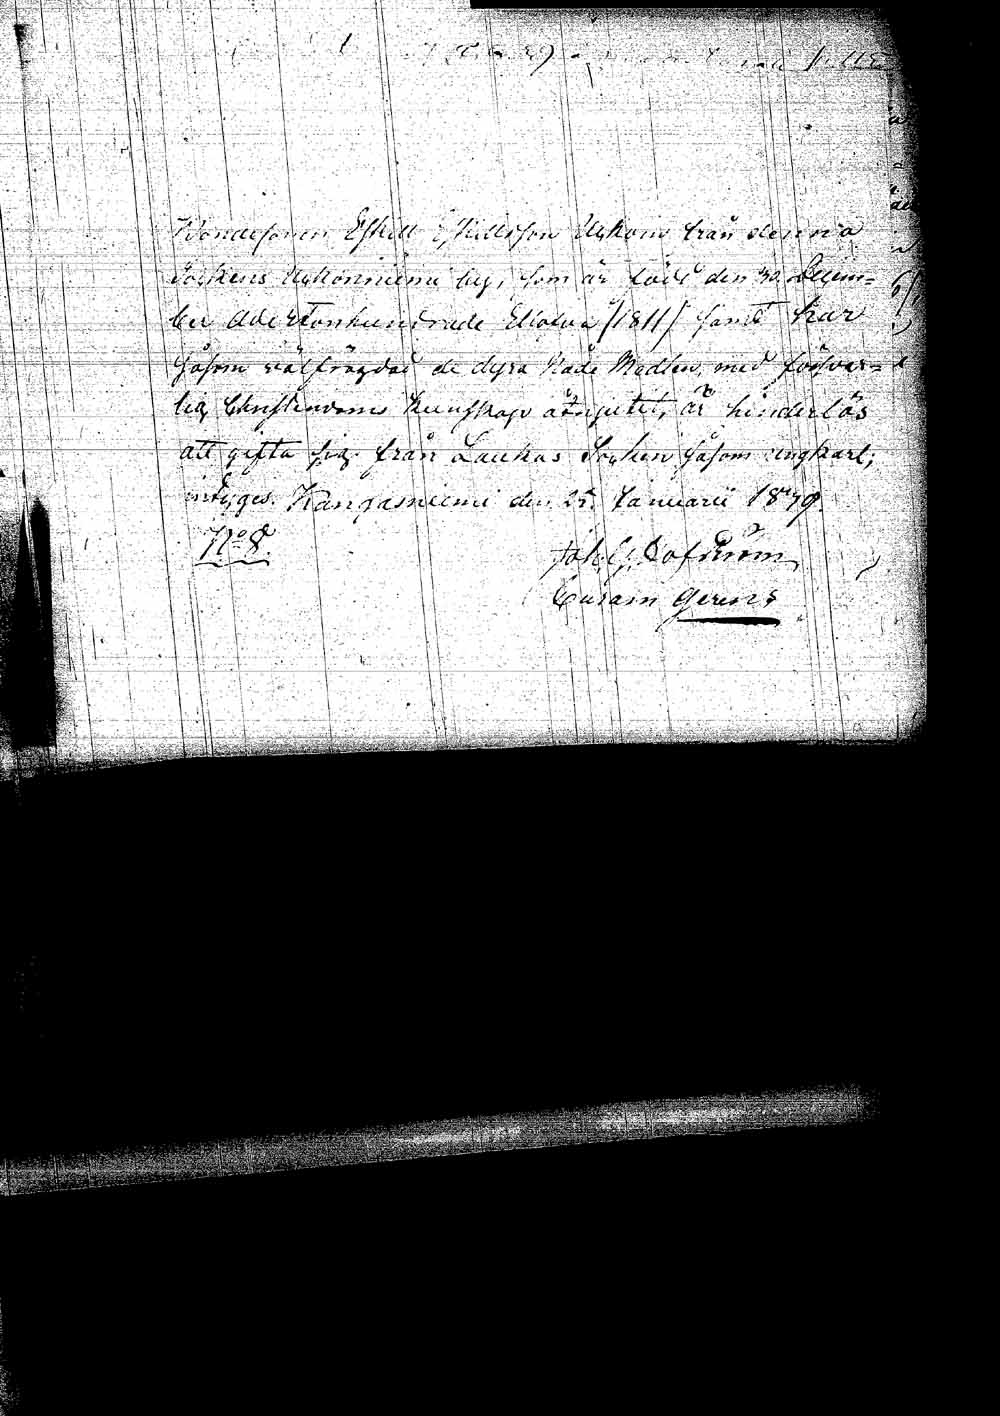 Bondesonen Eskill Eskillsson Ukkoin från denna
Sockens Ukkoniemi by, som är född den 30 Decem-
ber Adertonhundrade Ellofva /1811/ samt har
såsom välfrägdad de dyra Nåde Medlen, med försvar-
lig Christendoms kunskap åtnjutit, är hinderlös
att gifta sig från Laukas Socken såsom ungkarl;
intyges. Kangasniemi den 25. Januarii 18
No 8.
Joh. G.
Curam gerens